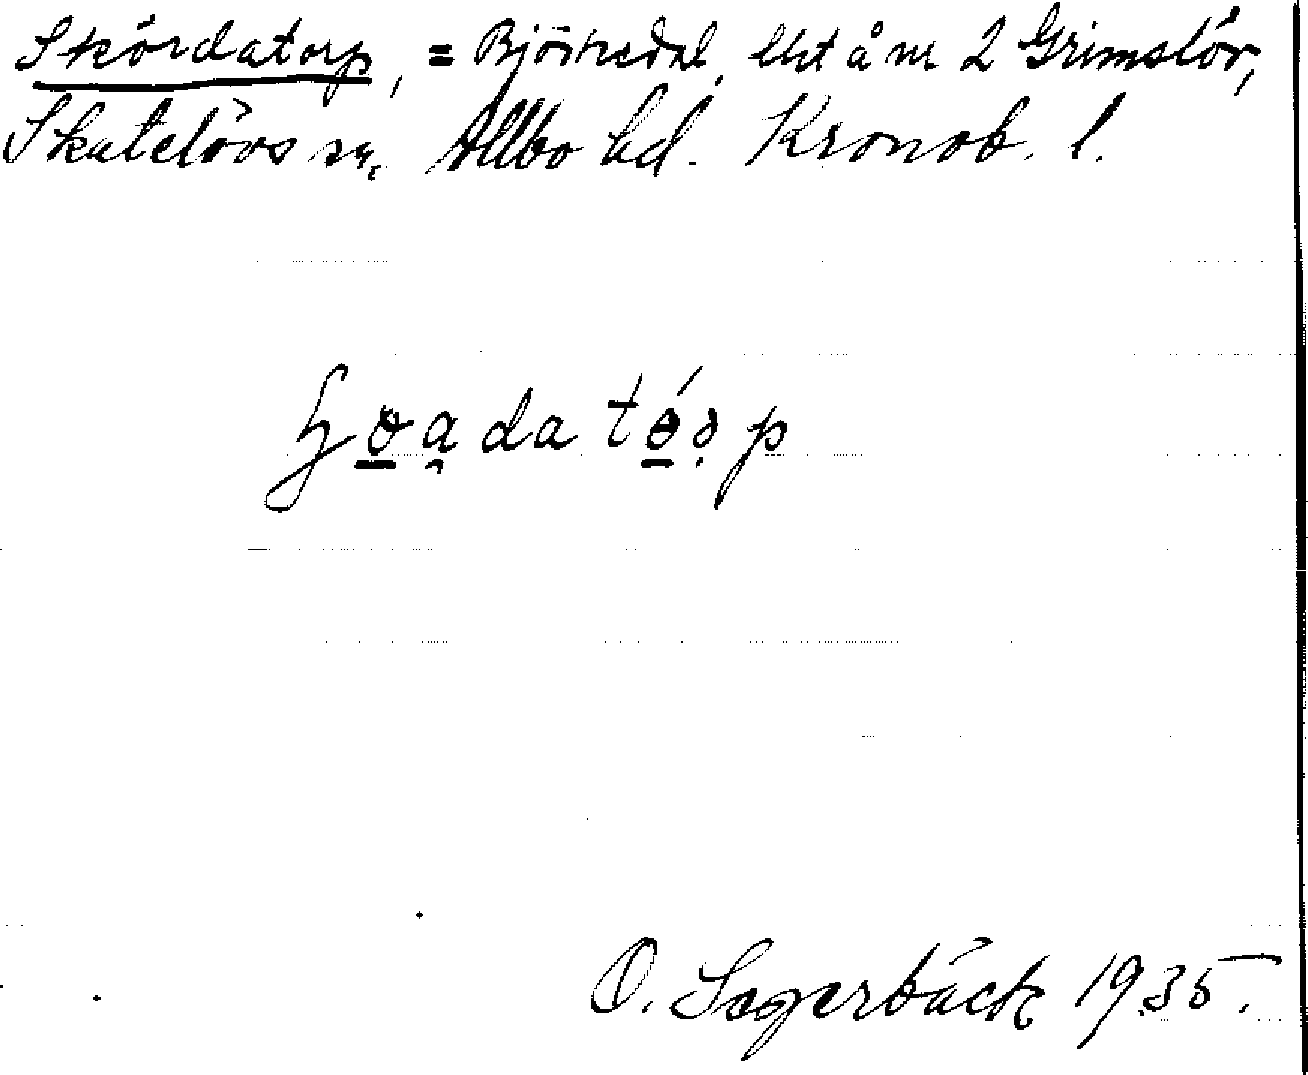 Skördatorp, = Björkedal, lht å nr 2 Grimslöv,
Skatelövs sn, Allbo hd. Kronob. l.
O. Lagerbäck 1935.